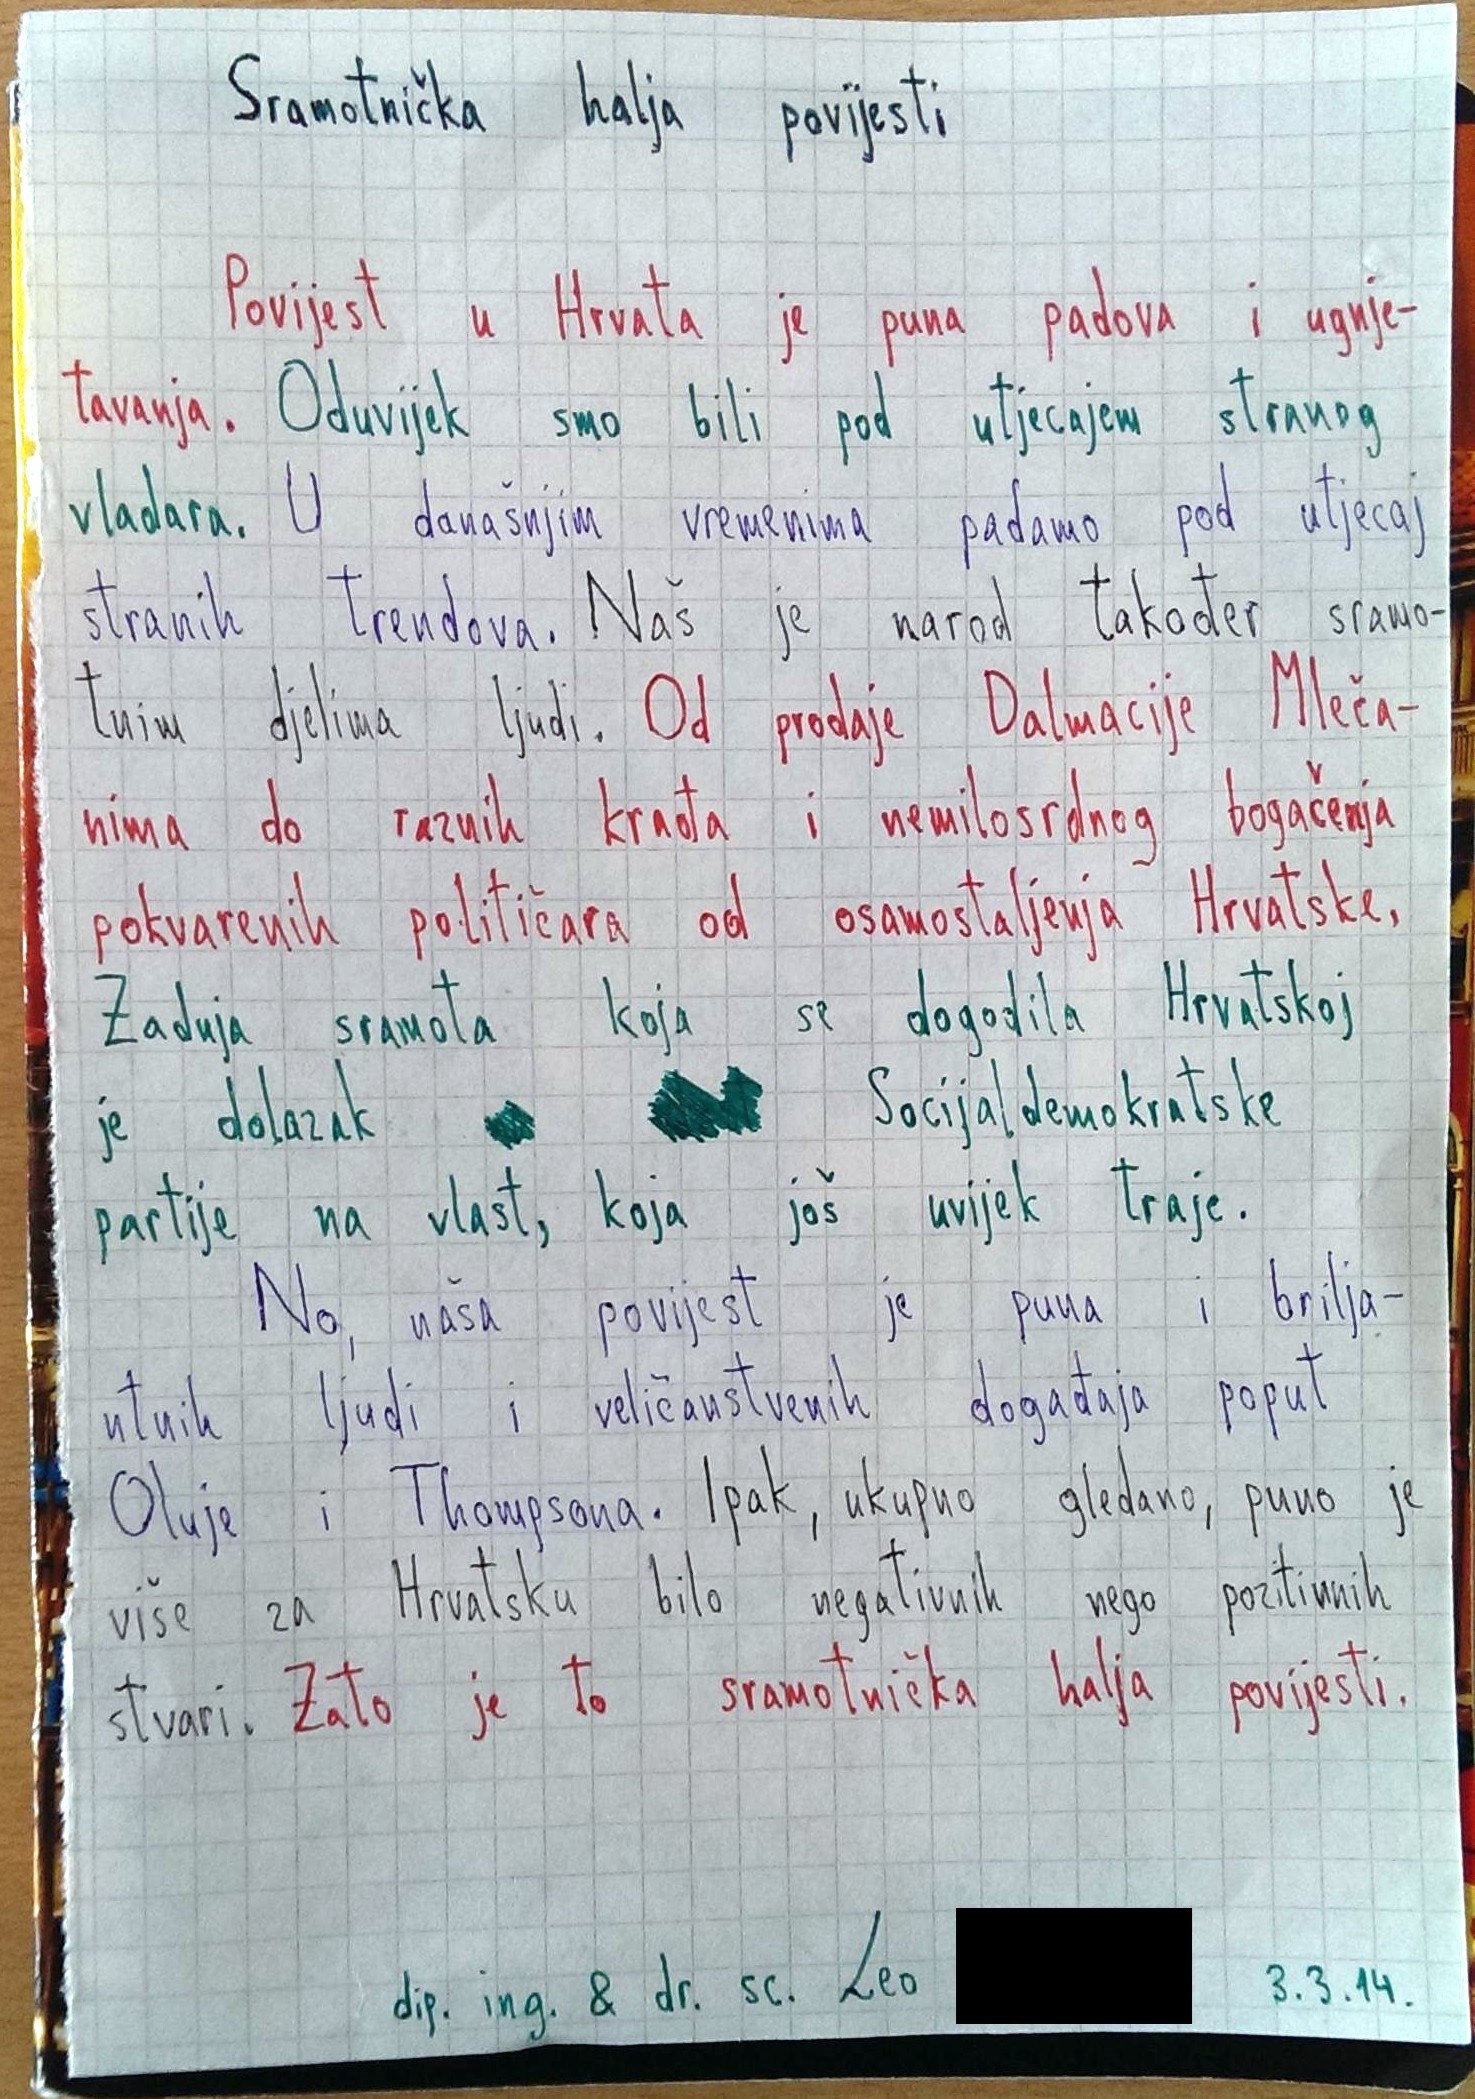 Sramotnička halja povijesti
Povijest u Hrvata je puna padova i ugnje-
tavanja. Oduvijek smo bili pod utjecajem stranog
vladara. U današnjim vremenima padamo pod utjecaj
stranih trendova. Naš je narod također sramo-
tnim djelima ljudi. Od prodaje Dalmacije Mleča-
nima do raznih krađa i nemilosrdnog bogačenja
pokvarenih političara od osamostaljenja Hrvatske.
Zadnja sramota koja se dogodila Hrvatskoj
je dolazak Socijaldemokratske
partije na vlast, koja još uvijek traje.
No, naša povijest je puna i brilja-
ntnih ljudi i veličanstvenih događaja poput
Oluje i Thompsona. Ipak, ukupno gledano, puno je
više za Hrvatsku bilo negativnih nego pozitivnih
stvari. Zato je to sramotnička halja povijesti.
dip. ing. & dr. sc. Leo 3.3.14.